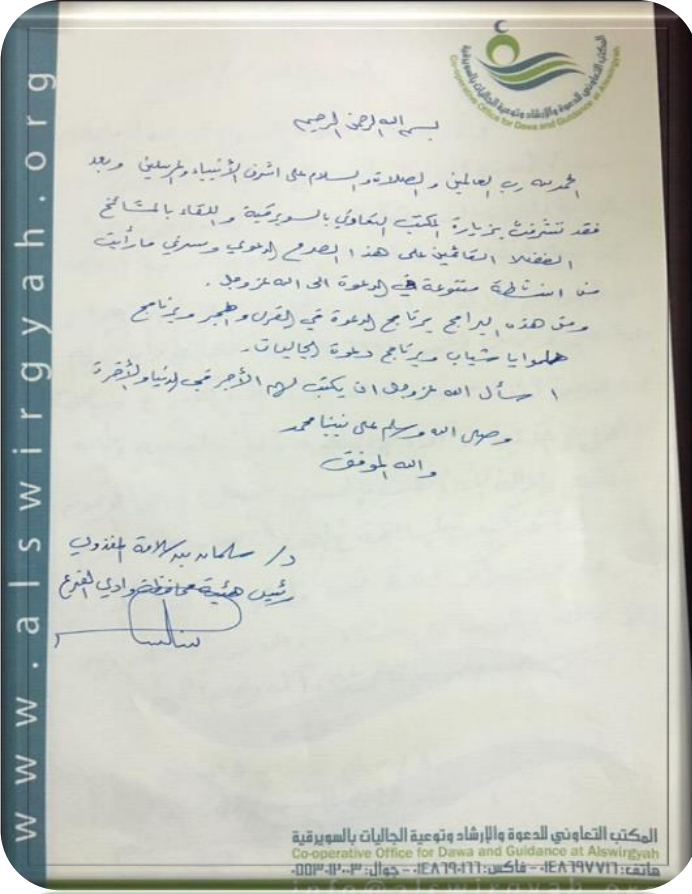 المكتب التعاوني للدعوة والإرشاد وتوعية الجاليات بالسويرقية
Co-operative Office for Dawa and Guidance at Alswirgyah
بسم الله الرحمن الرحيم
الحمد لله رب العالمين والصلاة والسلام على اشرف الأنبياء والمرسلين وبعد
فقد تشرفت بزيارة المكتب التعاوني بالسويرقية واللقاء بالمشائخ
الفضلا القائمين على هذا الصرح الدعوي وسرني ما رأيت
من انشطة متنوعة في الدعوة الى الله عز وجل .
ومن هذه البرامج برنامج الدعوة في القرى والهجر وبرنامج
هلموا يا شباب وبرنامج دعوة الجاليات .
اسأل الله عز وجل ان يكتب لهم الأجر في الدنيا والأخرة
وصلى الله وسلم على نبينا محمد
والله الموفق
د/ سلمان بن سلامة
رئيس هيئة محافظة وادي الفرع
www.alswirgyah.org
المكتب التعاوني للدعوة والإرشاد وتوعية الجاليات بالسويرقية
Co-operative Office for Dawa and Guidance at Alswirgyah
هاتف: ٠١٤٨٦٩٧٧١٦ - فاكس: ٠١٤٨٦٩٠١٦٦ - جوال: